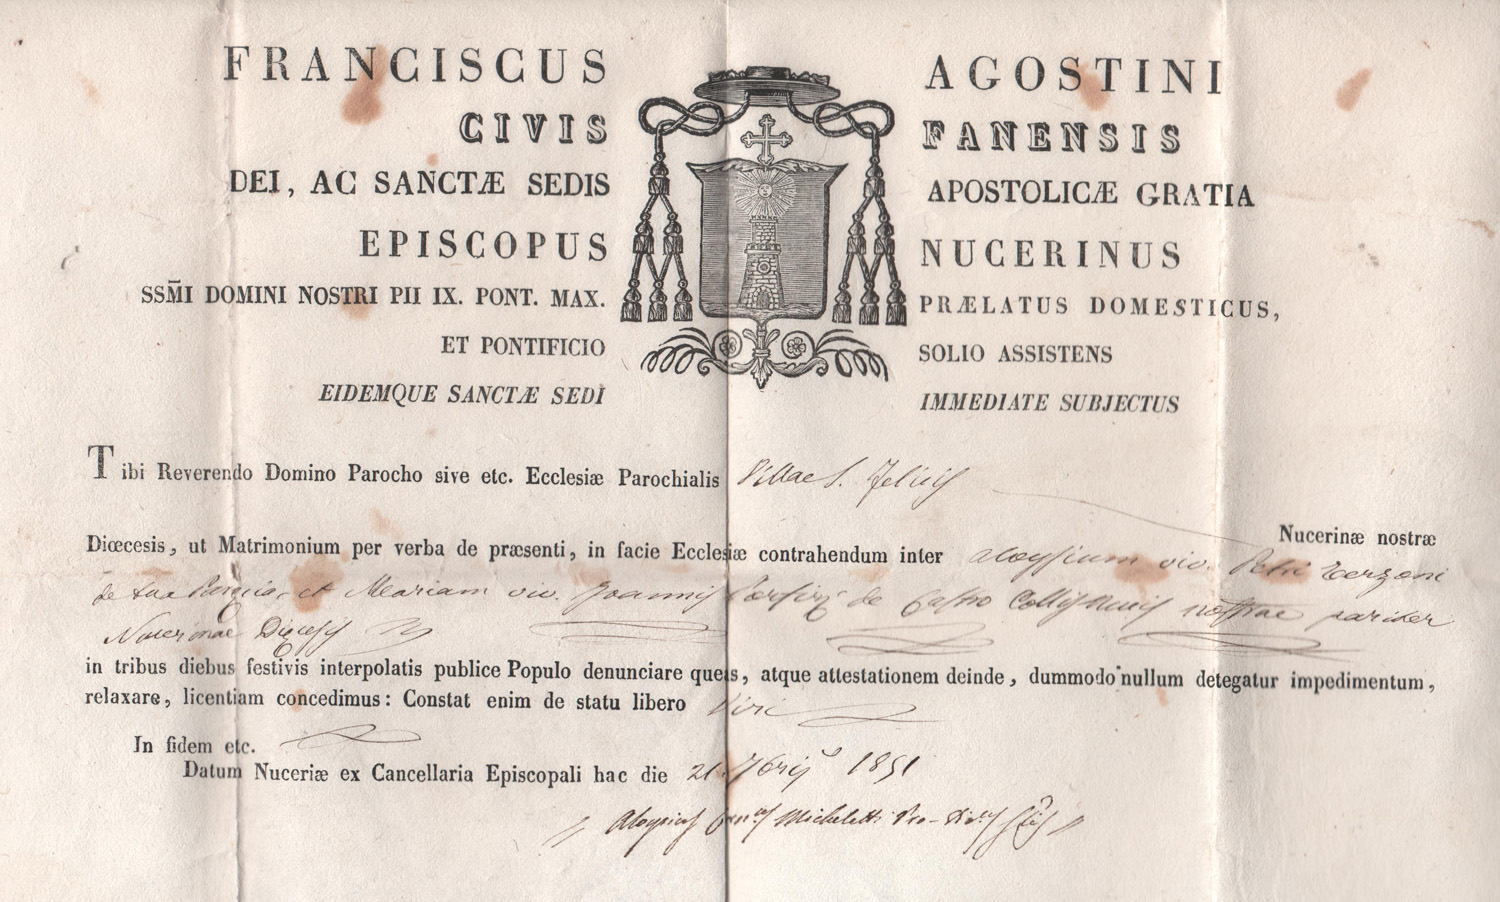 FRANCISCUS AGOSTINI
CIVIS FANENSIS
DEI, AC SANCTÆ SEDIS APOSTOLICÆ GRATIA
EPISCOPUS NUCERINUS
SSM̄I DOMINI NOSTRI PII IX. PONT. MAX. PRÆLATUS DOMESTICUS,
ET PONTIFICIO SOLIO ASSISTENS
EIDEMQUE SANCTÆ SEDI IMMEDIATE SUBJECTUS
Tibi Reverendo Domino Parocho sive etc. Ecclesiæ Parochialis Villae S. Felicis
Nucerinæ nostræ
Diœcesis, ut Matrimonium per verba de præsenti, in facie Ecclesiæ contrahendum inter Aloysium viv. Petri Terzoni
de tua et Mariam viv. Joannis de Castro nostrae pariter
Nucerinae Diœcesis
in tribus diebus festivis interpolatis publice Populo denunciare queas, atque attestationem deinde, dummodo nullum detegatur impedimentum,
relaxare, licentiam concedimus: Constat enim de statu libero Viri
In fidem etc.
Datum Nuceriæ ex Cancellaria Episcopali hac die 21 7bris 1851
Aloysius Micheletti Pro-